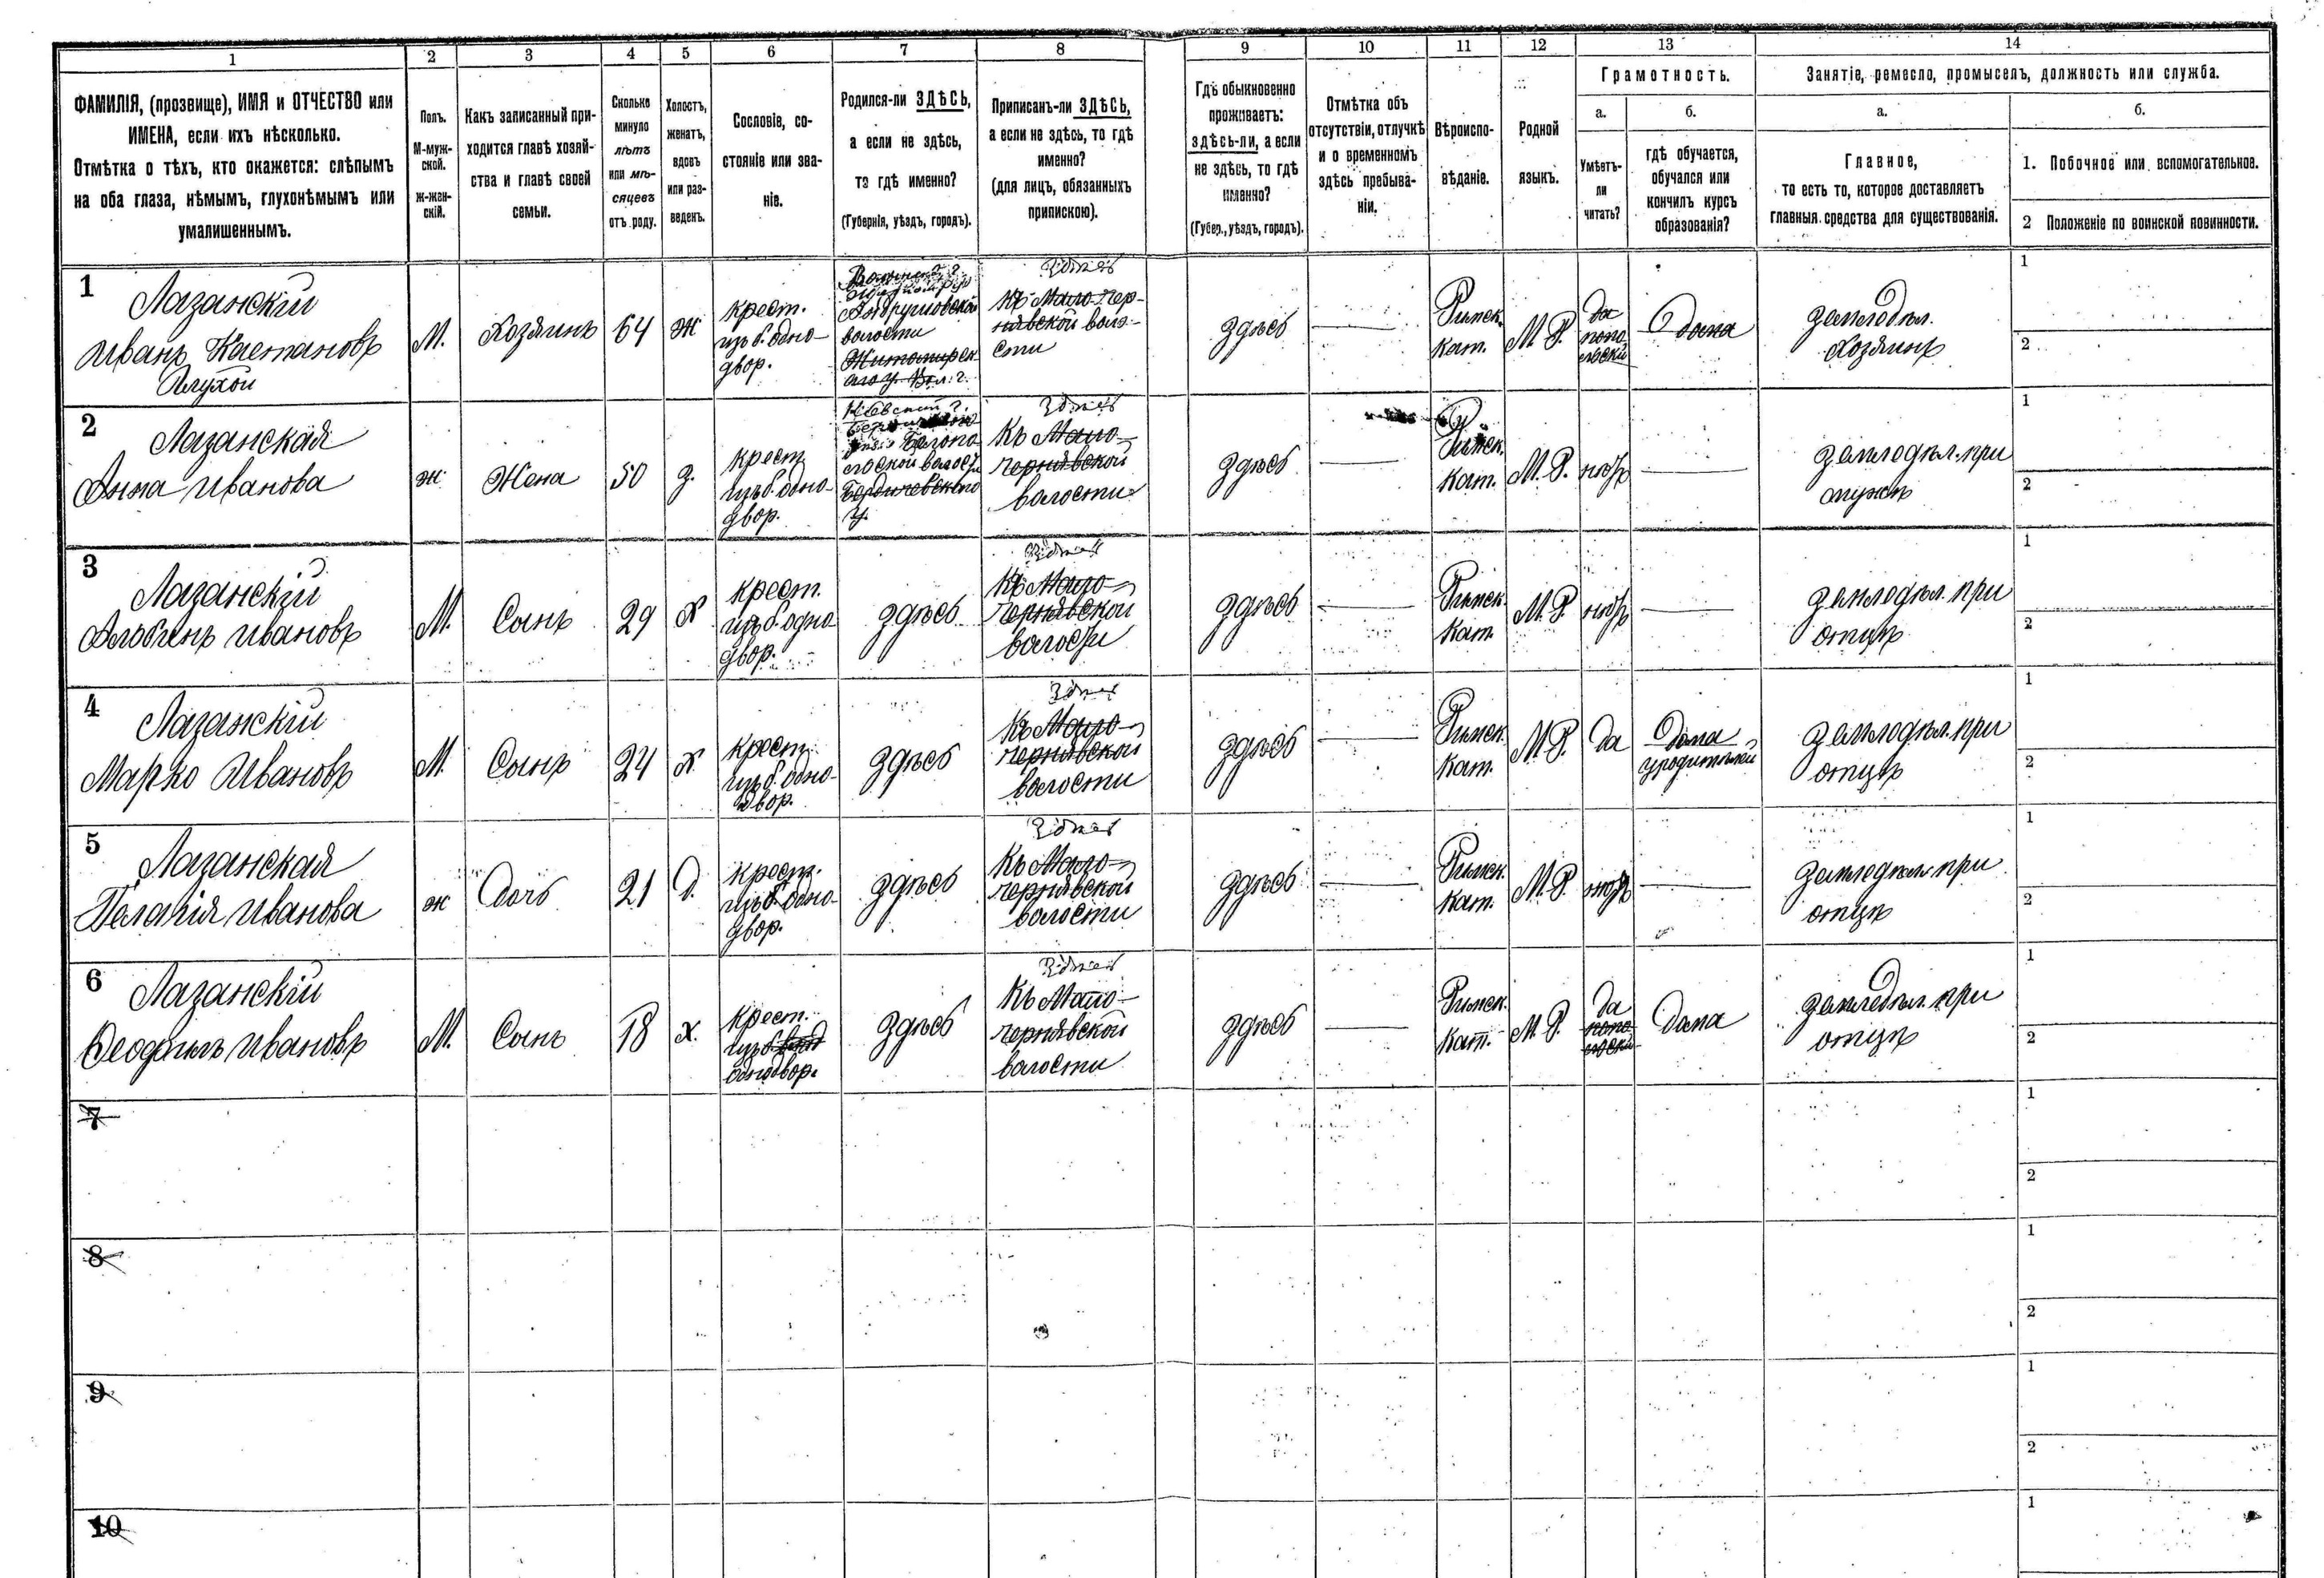 1 2 3 4 5 6 7 8 9 10 11 12 13 14
ФАМИЛІЯ, (прозвище), ИМЯ и ОТЧЕСТВО или
ИМЕНА, если ихъ нѣсколько.
Отмѣтка о тѣхъ, кто окажется: слѣпымъ
на оба глаза, нѣмымъ, глухонѣмымъ или
умалишеннымъ.
Полъ.
М-муж-
ской.
ж-жен-
скій.
Какъ записанный при-
ходится главѣ хозяй-
ства и главѣ своей
семьи.
Сколько
минуло
лѣтъ
или мѣ-
сяцевъ
отъ роду.
Холостъ,
женатъ,
вдовъ
или раз-
веденъ.
Сословіе, со-
стояніе или зва-
ніе.
Родился-ли ЗДѢСЬ,
а если не здѣсь,
то гдѣ именно?
(Губернія, уѣздъ, городъ).
Приписанъ-ли ЗДѢСЬ,
а если не здѣсь, то гдѣ
именно?
(для лицъ, обязанныхъ
припискою).
Гдѣ обыкновенно
проживаетъ:
здѣсь-ли, а если
не здѣсь, то гдѣ
именно?
(Губер., уѣздъ, городъ).
Отмѣтка объ
отсутствіи, отлучкѣ
и о временномъ
здѣсь пребыва-
ніи.
Вѣроиспо-
вѣданіе.
Родной
языкъ.
Грамотность.
а.
Умѣетъ-
ли
читать?
б.
гдѣ обучается,
обучался или
кончилъ курсъ
образованія?
Занятіе, ремесло, промыселъ, должность или служба.
а.
Главное,
то есть то, которое доставляетъ
главныя средства для существованія.
б.
1. Побочное или вспомогательное.
2 Положеніе по воинской повинности.
1
Лазанскій
Иванъ Каетановъ
Глухой
М.
Хозяинъ
64
ж
крест.
изъ б. одно-
двор.
Андрушовской
волости
Житомирск
аго у. Вол. г.
Здѣсь
Къ Мало-чер-
нявской воло-
сти
здѣсь
Римск.
Кат.
М. Р.
да
попо
льски
Дома
земледѣл.
Хозяинъ
1
2
2
Лазанская
Анна Иванова
ж
Жена
50
з.
крест
изъ б. одно-
двор.
Кіевской г.
Бердичевского
у.
Здѣсь
Къ Мало-
чернявской
волости
здѣсь
Римск.
Кат.
М. Р.
нѣтъ
земледѣл. при
мужѣ
1
2
3
Лазанскій
Альбинъ Ивановъ
М.
Сынъ
29
х
крест.
изъ б. одно
двор.
здѣсь
Здѣсь
Къ Мало-
чернявской
волости
здѣсь
Римск.
Кат.
М. Р.
нѣтъ
земледѣл. при
отцѣ
1
2
4
Лазанскій
Марко Ивановъ
М.
Сынъ
24
х
крест.
изъ б. одно-
двор.
здѣсь
Здѣсь
Къ Мало-
чернявской
волости
здѣсь
Римск.
Кат.
М. Р.
да
Дома
у родителей
земледѣл. при
отцѣ
1
2
5
Лазанская
Пелагія Иванова
ж
Дочь
21
д.
крест.
изъ б. одно-
двор.
здѣсь
Здѣсь
Къ Мало-
чернявской
волости
здѣсь
Римск.
Кат.
М. Р.
нѣтъ
земледѣл. при
отцѣ
1
2
6
Лазанскій
Феофилъ Ивановъ
М.
Сынъ
18
х.
крест.
изъ б.
однодвор.
здѣсь
Здѣсь
Къ Мало-
чернявской
волости
здѣсь
Римск.
Кат.
М. Р.
да
попо
льски
Дома
земледѣл. при
отцѣ
1
2
7
1
2
8
1
2
9
1
2
10
1